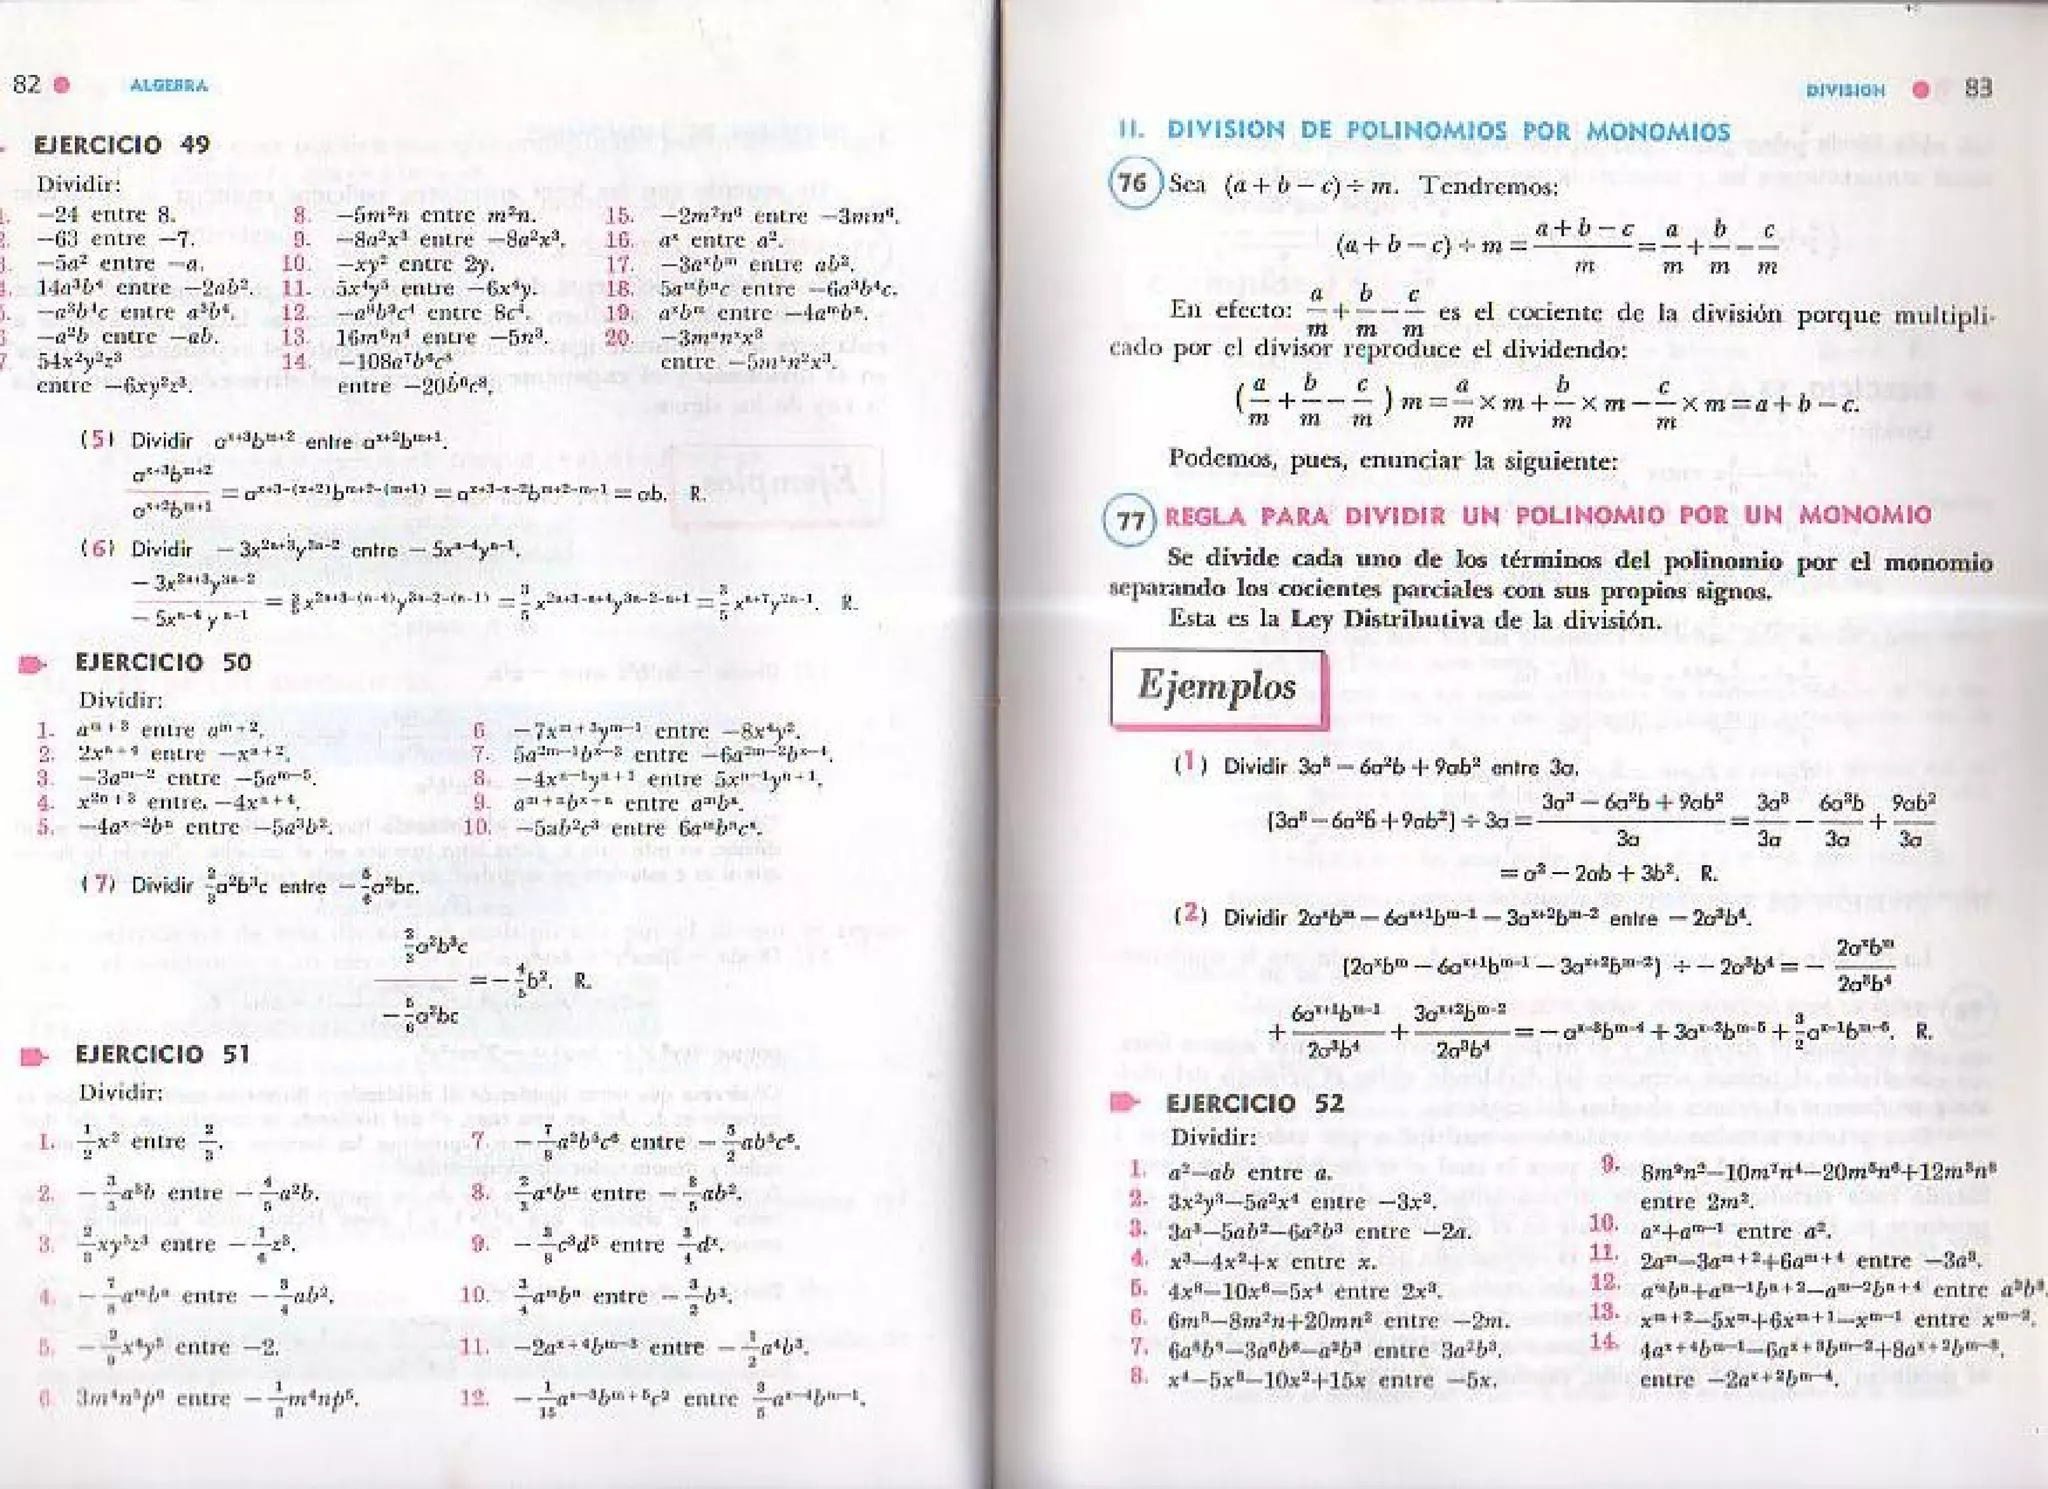 82 ● ALGEBRA
EJERCICIO 49
Dividir:
1. −24 entre 8.
2. −63 entre −7.
3. −5a² entre −a.
4. 14a³b⁴ entre −2ab².
5. −a³b⁴c entre a³b⁴.
6. −a²b entre −ab.
7. 54x²y²z³
entre −6xy²z³.
8. −5m²n entre m²n.
9. −8a²x³ entre −8a²x³.
10. −xy² entre 2y.
11. 5x⁴y⁵ entre −6x⁴y.
12. −a⁸b⁹c⁴ entre 8c⁴.
13. 16m⁶n⁴ entre −5n³.
14. −108a⁷b⁶c⁸
entre −20b⁶c⁸.
15. −2m²n⁶ entre −3mn⁶.
16. aˣ entre a².
17. −3aˣbᵐ entre ab².
18. 5aᵐbⁿc entre −6a³b⁴c.
19. aˣbᵐ entre −4aᵐbⁿ.
20. −3mᵃnˣx³
entre −5mˣn²x³.
(5) Dividir aˣ⁺³bᵐ⁺² entre aˣ⁺²bᵐ⁺¹.
aˣ⁺³bᵐ⁺² / aˣ⁺²bᵐ⁺¹ = aˣ⁺³⁻⁽ˣ⁺²⁾bᵐ⁺²⁻⁽ᵐ⁺¹⁾ = aˣ⁺³⁻ˣ⁻²bᵐ⁺²⁻ᵐ⁻¹ = ab. R.
(6) Dividir −3x²ᵃ⁺³y³ᵃ⁻² entre −5xᵃ⁻⁴yᵃ⁻¹.
−3x²ᵃ⁺³y³ᵃ⁻² / −5xᵃ⁻⁴yᵃ⁻¹ = 3/5 x²ᵃ⁺³⁻⁽ᵃ⁻⁴⁾y³ᵃ⁻²⁻⁽ᵃ⁻¹⁾ = 3/5 x²ᵃ⁺³⁻ᵃ⁺⁴y³ᵃ⁻²⁻ᵃ⁺¹ = 3/5 xᵃ⁺⁷y²ᵃ⁻¹. R.
EJERCICIO 50
Dividir:
1. aᵐ⁺³ entre aᵐ⁺².
2. 2xᵃ⁺⁴ entre −xᵃ⁺².
3. −3aᵐ⁻² entre −5aᵐ⁻⁵.
4. x²ⁿ⁺³ entre. −4xⁿ⁺⁴.
5. −4aˣ⁻²bⁿ entre −5a³b².
6. −7xᵐ⁺³yᵐ⁻¹ entre −8x⁴y².
7. 5a²ᵐ⁻¹bˣ⁻³ entre −6a²ᵐ⁻²bˣ⁻⁴.
8. −4xⁿ⁻¹yⁿ⁺¹ entre 5xⁿ⁻¹yⁿ⁺¹.
9. aᵐ⁺ⁿbˣ⁺ᵃ entre aᵐbᵃ.
10. −5ab²c³ entre 6aᵐbⁿcˣ.
(7) Dividir 2/3 a²b³c entre −5/6 a²bc.
2/3 a²b³c / −5/6 a²bc = −4/5 b². R.
EJERCICIO 51
Dividir:
1. 1/2 x² entre 2/3.
2. −3/5 a³b entre −4/5 a²b.
3. 2/3 xy⁵z³ entre −1/4 z³.
4. −7/8 aᵐbⁿ entre −3/4 ab².
5. −2/9 x⁴y⁵ entre −2.
6. 3m⁴n⁵p⁶ entre −1/3 m⁴np⁵.
7. −7/8 a²b⁵c⁶ entre −5/2 ab⁵c⁶.
8. 2/3 aˣbᵐ entre −3/5 ab².
9. −3/8 c³d⁵ entre 3/4 dˣ.
10. 3/4 aᵐbⁿ entre −3/2 b³.
11. −2aˣ⁺⁴bᵐ⁻³ entre −1/2 a⁴b³.
12. −1/15 aˣ⁻³bᵐ⁺⁵c² entre 3/5 aˣ⁻⁴bᵐ⁻¹.
DIVISION ● 83
II. DIVISION DE POLINOMIOS POR MONOMIOS
76 Sea (a + b − c) ÷ m. Tendremos:
(a + b − c) ÷ m = a + b − c / m = a/m + b/m − c/m
En efecto: a/m + b/m − c/m es el cociente de la división porque multipli-
cado por el divisor reproduce el dividendo:
(a/m + b/m − c/m) m = a/m × m + b/m × m − c/m × m = a + b − c.
Podemos, pues, enunciar la siguiente:
77 REGLA PARA DIVIDIR UN POLINOMIO POR UN MONOMIO
Se divide cada uno de los términos del polinomio por el monomio
separando los cocientes parciales con sus propios signos.
Esta es la Ley Distributiva de la división.
Ejemplos
(1) Dividir 3a³ − 6a²b + 9ab² entre 3a.
(3a³ − 6a²b + 9ab²) ÷ 3a = 3a³ − 6a²b + 9ab² / 3a = 3a³/3a − 6a²b/3a + 9ab²/3a
= a² − 2ab + 3b². R.
(2) Dividir 2aˣbᵐ − 6aˣ⁺¹bᵐ⁻¹ − 3aˣ⁺²bᵐ⁻² entre −2a³b⁴.
(2aˣbᵐ − 6aˣ⁺¹bᵐ⁻¹ − 3aˣ⁺²bᵐ⁻²) ÷ −2a³b⁴ = − 2aˣbᵐ / 2a³b⁴
+ 6aˣ⁺¹bᵐ⁻¹ / 2a³b⁴ + 3aˣ⁺²bᵐ⁻² / 2a³b⁴ = −aˣ⁻³bᵐ⁻⁴ + 3aˣ⁻²bᵐ⁻⁵ + 3/2 aˣ⁻¹bᵐ⁻⁶. R.
EJERCICIO 52
Dividir:
1. a²−ab entre a.
2. 3x²y³−5a²x⁴ entre −3x².
3. 3a³−5ab²−6a²b³ entre −2a.
4. x³−4x²+x entre x.
5. 4x⁸−10x⁶−5x⁴ entre 2x³.
6. 6m³−8m²n+20mn² entre −2m.
7. 6a⁸b⁸−3a⁶b⁶−a²b³ entre 3a²b³.
8. x⁴−5x³−10x²+15x entre −5x.
9. 8m⁹n²−10m⁷n⁴−20m⁵n⁶+12m³n⁸
entre 2m².
10. aˣ+aᵐ⁻¹ entre a².
11. 2aᵐ−3aᵐ⁺²+6aᵐ⁺⁴ entre −3a³.
12. aᵐbⁿ+aᵐ⁻¹bⁿ⁺²−aᵐ⁻²bⁿ⁺⁴ entre a²b³.
13. xᵐ⁺²−5xᵐ+6xᵐ⁺¹−xᵐ⁻¹ entre xᵐ⁻².
14. 4aˣ⁺⁴bᵐ⁻¹−6aˣ⁺³bᵐ⁻²+8aˣ⁺²bᵐ⁻³.
entre −2aˣ⁺²bᵐ⁻⁴.